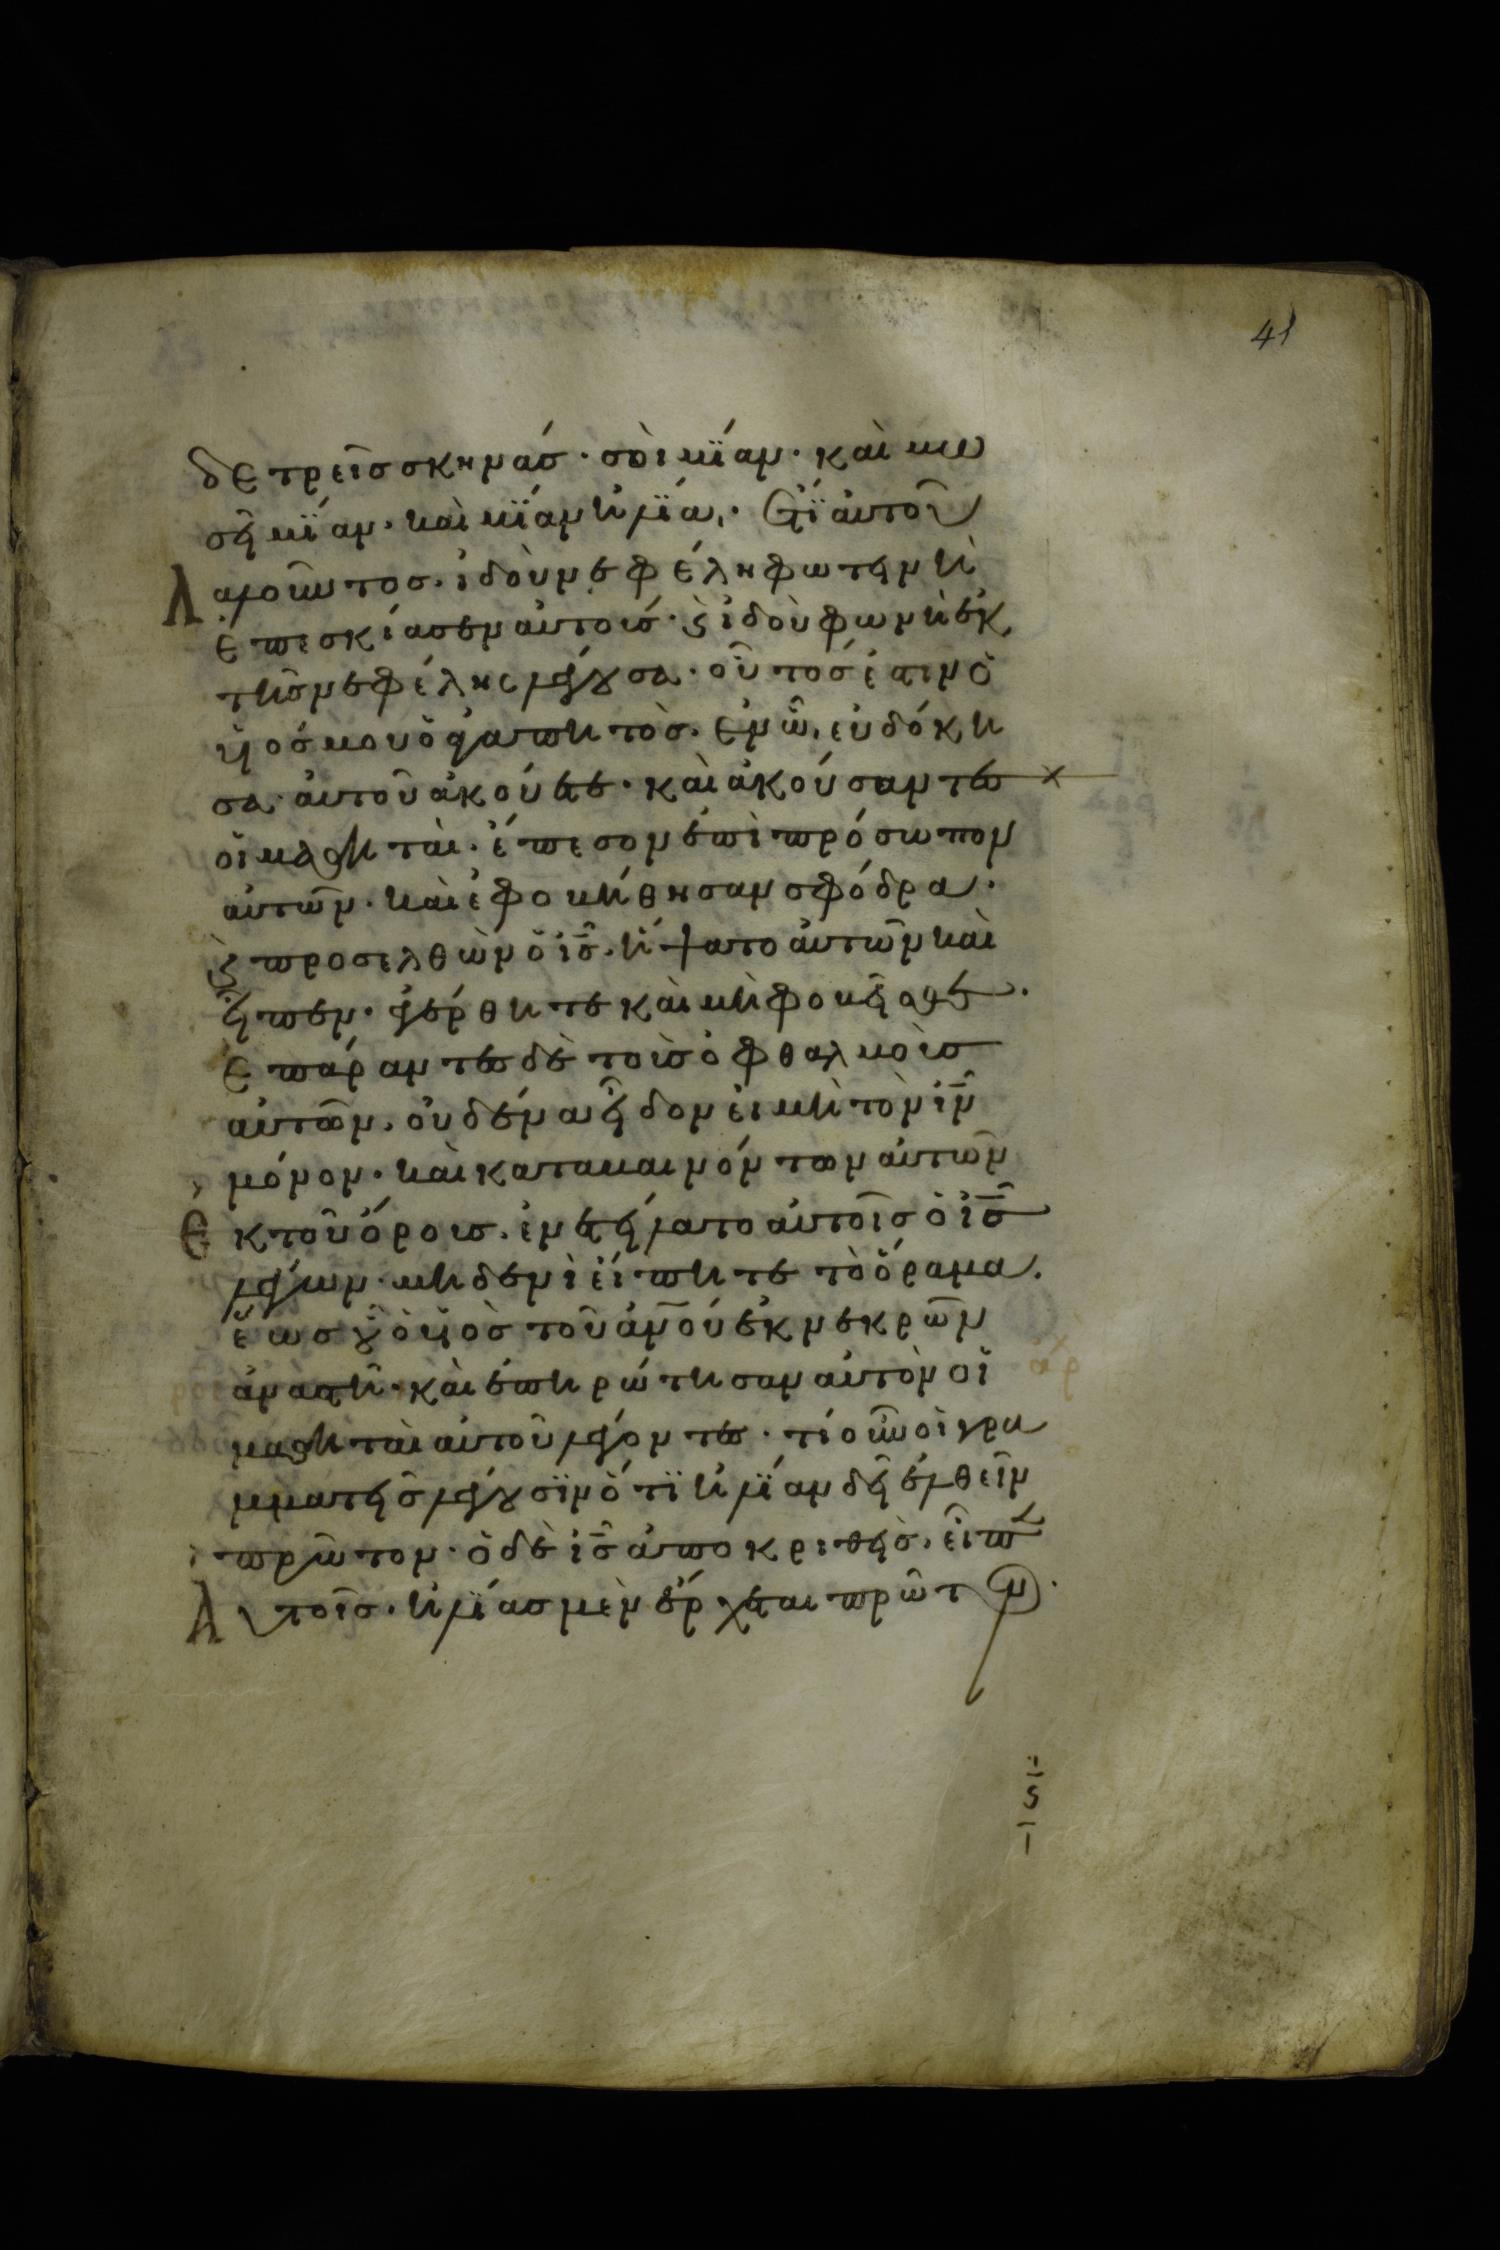 41
δε τρεῖς σκηνάς· σοὶ μΐαν· καὶ μω
σῆ μΐαν· καὶ μΐαν ἡλΐα· ἔτϊ αὐτοῦ
λαλοῦντος· ἰδοὺ νεφέλη φωτεινὴ
ἐπεσκίασεν αὐτούς· ϛ ἰδοὺ φωνὴ ἐκ
τῆς νεφέλης λέγουσα· οὗτός ἐστιν ὁ
υἱός μου ὁ ἀγαπητὸς· ἐν ὧ εὐδόκη
σα· αὐτοῦ ἀκούετε· καὶ ἀκούσαντες
οἱ μαθηταὶ· ἔπεσον ἐπὶ πρόσωπον
αὐτῶν· καὶ ἐφοβήθησαν σφόδρα·
ϛ προσελθὼν ὁ ἰς̅· ἥψατο αὐτῶν καὶ
εἶπεν· ἐγέρθητε καὶ μὴ φοβεῖσθε·
Ἐπάραντες δὲ τοὺς ὀφθαλμοὺς
αὐτῶν· οὐδένα εἶδον εἰ μὴ τὸν ἰν̅
μόνον· καὶ καταβαινόντων αὐτῶν
Ἐκ τοῦ ὄρους· ἐνετείλατο αὐτοῖς ὁ ἰς̅
λέγων· μηδενὶ εἴπητε τὸ ὅραμα·
ἕως οὗ ὁ υἱὸς τοῦ ἀν̅ου ἐκ νεκρῶν
ἀναστῆ· καὶ ἐπηρώτησαν αὐτὸν οἱ
μαθηταὶ αὐτοῦ λέγοντες· τί οὖν οἱ γρα
μματεῖς λέγουσϊν ὅτϊ ἡλΐαν δεῖ ἐλθεῖν
πρῶτον· ὁ δὲ ἰς̅ ἀποκριθεὶς· εἶπεν
Αυτοῖς· ἡλΐας μὲν ἔρχεται πρῶτον·